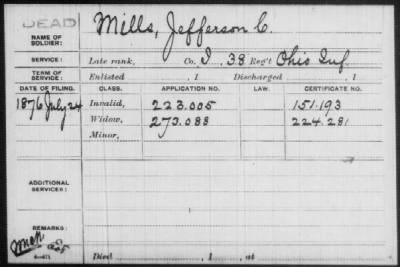 DEAD
NAME OF SOLDIER: Mills, Jefferson C.
SERVICE: Late rank, Co. I, 38 Reg't Ohio Inf.
TERM OF SERVICE: Enlisted , 1 Discharged , 1
DATE OF FILING. CLASS. APPLICATION NO. LAW. CERTIFICATE NO.
1876 July 24 Invalid, 223.005 151.193
Widow, 273.088 224.281
Minor,
ADDITIONAL SERVICES:
REMARKS:
Died , 1 , at